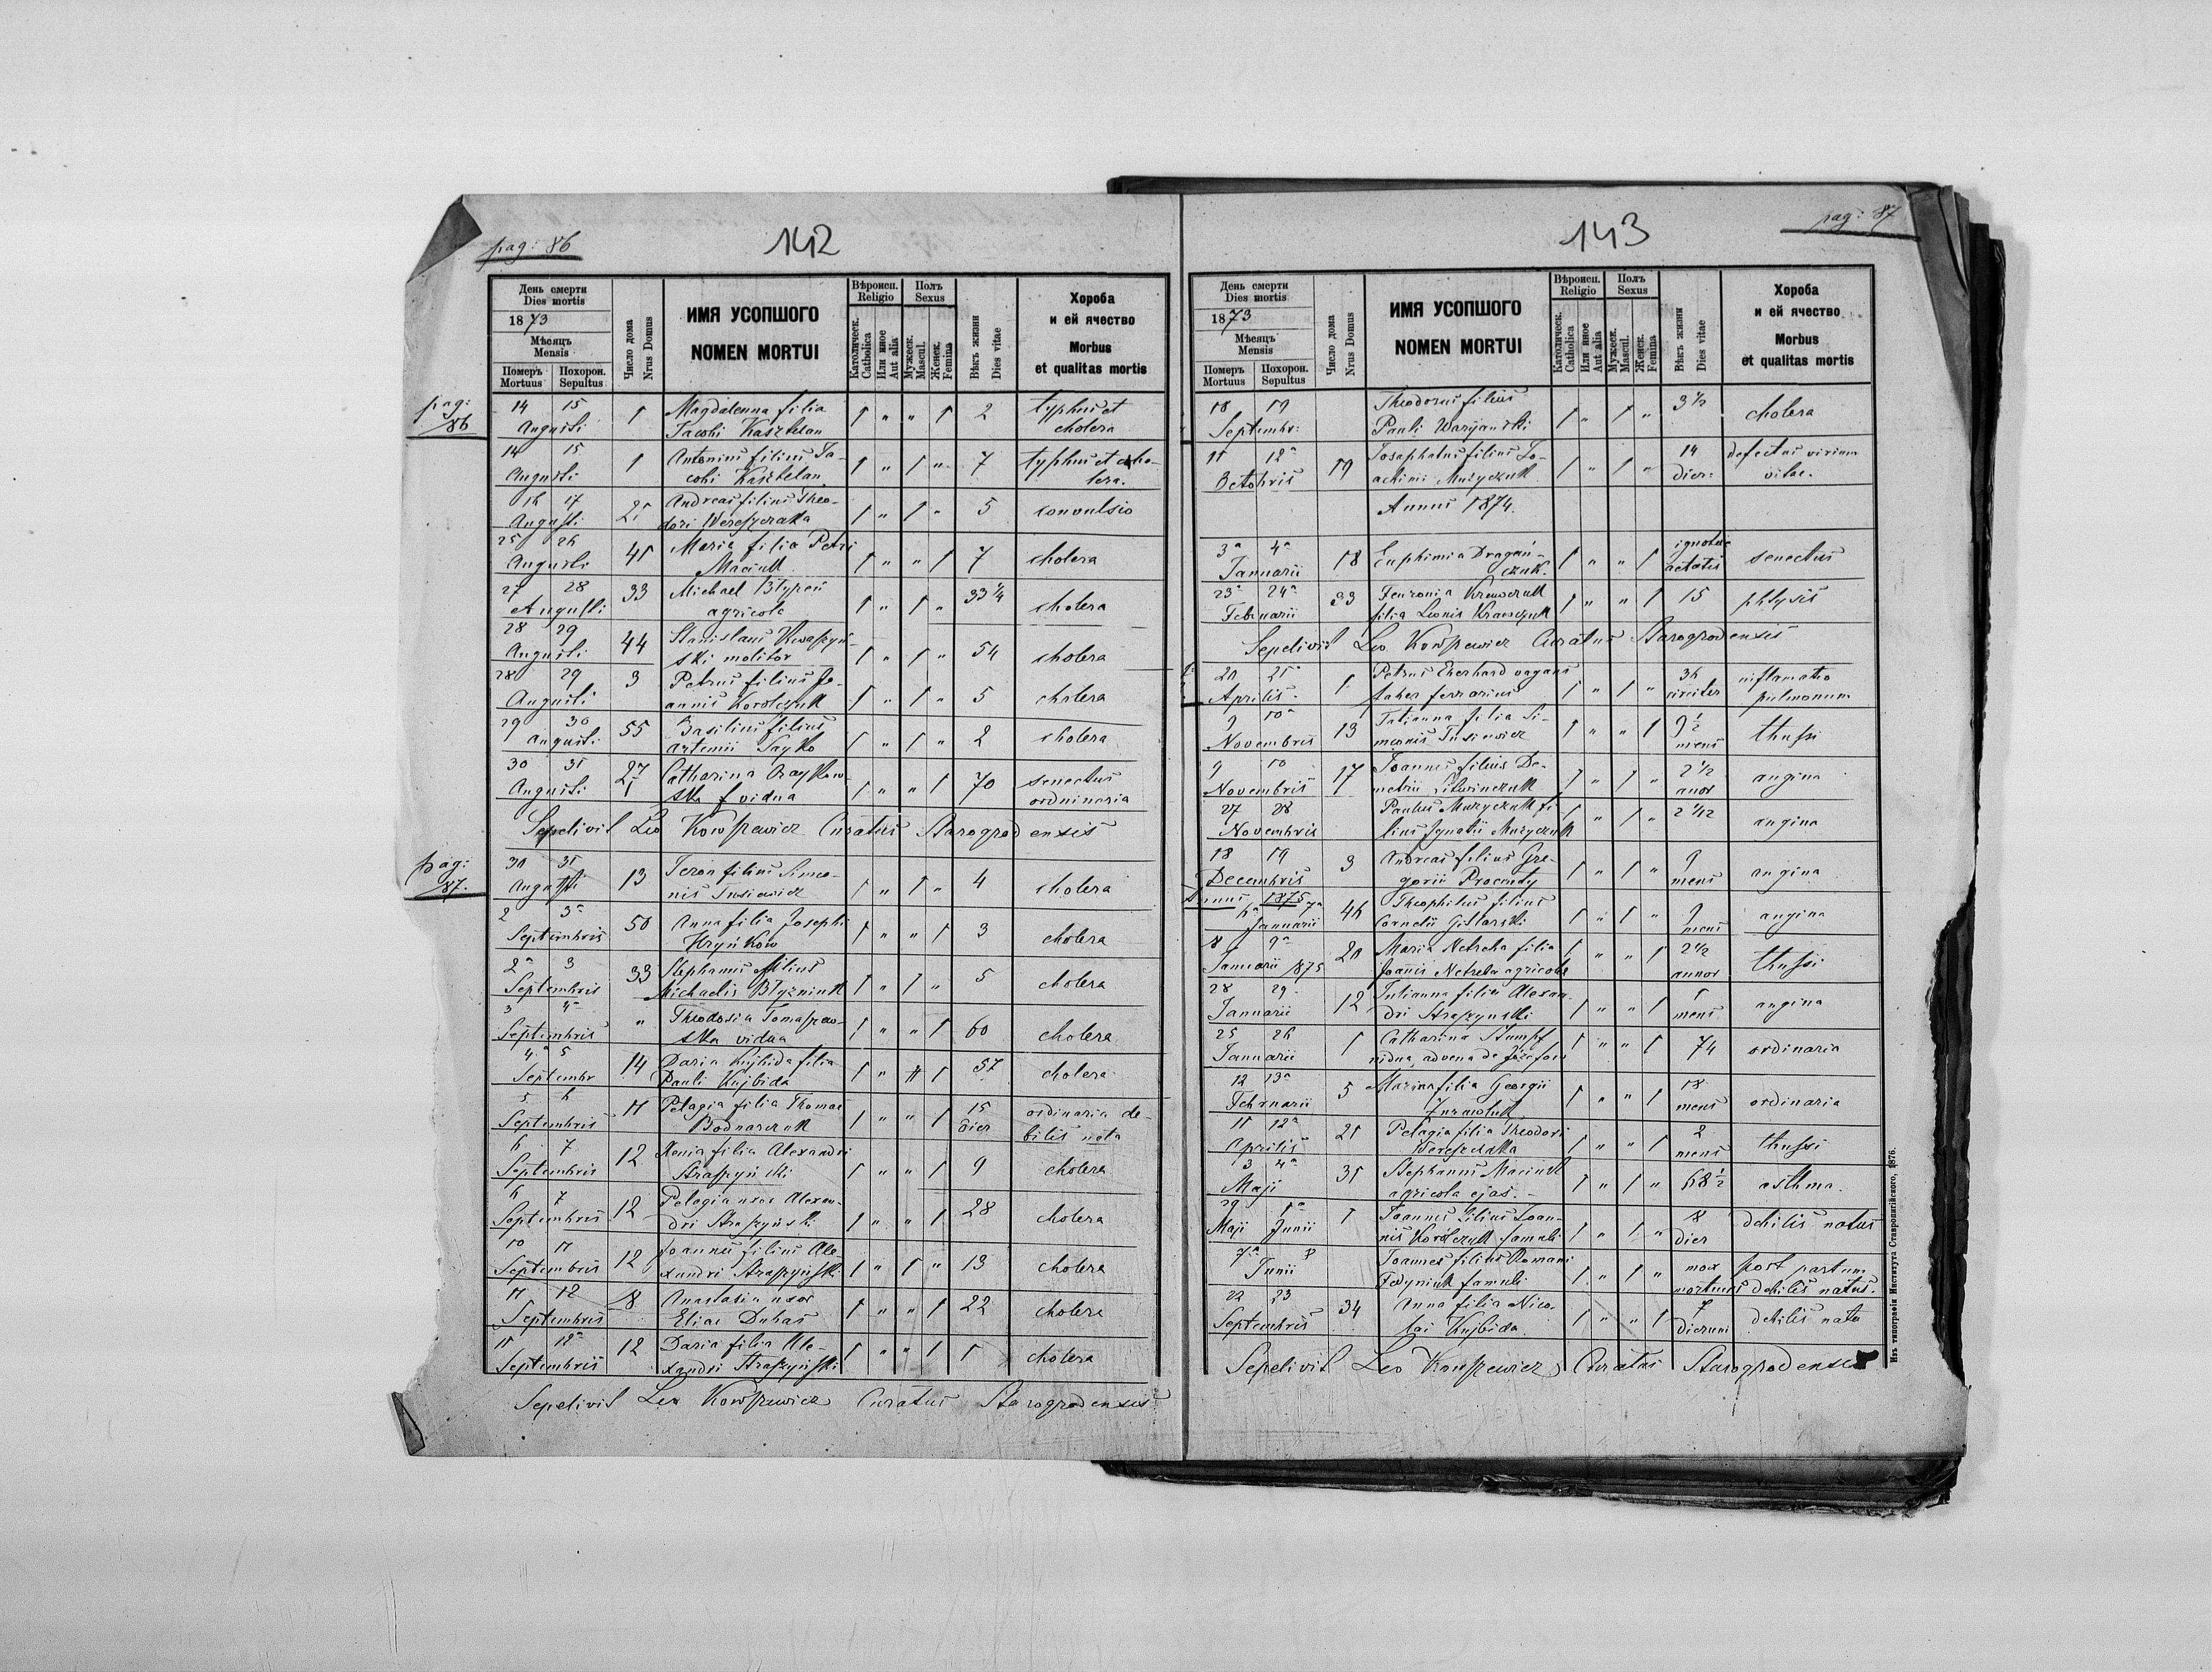 pag: 86
142
День смерти
Dies mortis
1873
Мѣсяцъ
Mensis
Померъ
Mortuus
Похорон.
Sepultus
Число дома
Nrus Domus
ИМЯ УСОПШОГО
NOMEN MORTUI
Вѣроисп.
Religio
Католическ.
Catholica
Или иное
Aut alia
Полъ
Sexus
Мужеск.
Mascul.
Женск.
Femina
Вѣкъ жизни
Dies vitae
Хороба
и ей ячество
Morbus
et qualitas mortis
pag: 86
14 15 Augusti 1 Magdalenna filia Jacobi Kasztelan 1 " " 1 2 typhus et cholera
14 15 Augusti 1 Antonius filius Jacobi Kasztelan 1 " 1 " 7 typhus et cholera.
16 17 Augusti 21 Andreas filius Theodori Wereszczaka 1 " 1 " 5 convulsio
25 26 Augusti 41 Maria filia Petri Maciuk 1 " " 1 7 cholera
27 28 Augusti 33 Michael agricola 1 " 1 " 33 1/4 cholera
28 29 Augusti 44 Stanislaus molitor 1 " 1 " 54 cholera
28 29 Augusti 3 Petrus filius Joannis Korolczuk 1 " 1 " 5 cholera
29 30 Augusti 55 Basilius filius Artemii Sayko 1 " 1 " 2 cholera
30 31 Augusti 27 Catharina vidua 1 " " 1 70 senectus ordninaria
Sepelivit Leo Kowszewicz Curatus Starogrodensis
pag: 87.
30 31 Augusti 13 Jeron filius Simeonis Tusiewicz 1 " 1 " 4 cholera
2 3a Septembris 50 Anna filia Josephi Hryńkow 1 " " 1 3 cholera
2a 3 Septembris 33 Stephanus filius Michaelis Blyzniuk 1 " 1 " 5 cholera
3 4a Septembris " Theodosia Tomaszewska vidua 1 " " 1 60 cholera
4a 5 Septembr 14 Daria Kujbida filia Pauli Kujbida 1 " 1 57 cholera
5 6 Septembris 11 Pelagia filia Thomae Bodnarczuk 1 " " 1 15 dier ordinaria debilis nata
6 7 Septembris 12 Xenia filia Alexandri Straszyński 1 " " 1 9 cholera
6 7 Septembris 12 Pelagia uxor Alexandri Straszyński 1 " " 1 28 cholera
10 11 Septembris 12 Joannes filius Alexandri Straszyński 1 " 1 " 13 cholera
11 12 Septembris 8 Anastasia uxor Eliae Duhas 1 " " 1 22 cholera
11 12a Septembris 12 Daria filia Alexandri Straszyński 1 " " 1 1 cholera
Sepelivit Leo Kowszewicz Curatus Starogrodensis
143
pag: 87
День смерти
Dies mortis
1873
Мѣсяцъ
Mensis
Померъ
Mortuus
Похорон.
Sepultus
Число дома
Nrus Domus
ИМЯ УСОПШОГО
NOMEN MORTUI
Вѣроисп.
Religio
Католическ.
Catholica
Или иное
Aut alia
Полъ
Sexus
Мужеск.
Mascul.
Женск.
Femina
Вѣкъ жизни
Dies vitae
Хороба
и ей ячество
Morbus
et qualitas mortis
18 19 Septembr: Theodorus filius Pauli Waryański 1 " 1 " 3 1/2 cholera
11 12a Octobris 19 Josaphatus filius Joachimi Muzyczuk 1 " 1 " 14 dier: defectus virium vitae.
Annus 1874.
3a 4a Januarii 18 Euphimia Dragańczuk. 1 " " 1 ignotae aetatis senectus
23a 24a Februarii 33 Feuronia Krawczuk filia Leonis Krawczuk 1 " " 1 15 phtysis
Sepelivit Leo Kowszewicz Curatus Starogrodensis
20 21a Aprilis 1 Petrus Eberhard vagans faber ferrarius 1 " 1 " 36 circiter inflamatio pulmonum
9 10a Novembris 13 Tatianna filia Simeonis Tusiewicz 1 " " 1 9 1/2 mens thussi
9 10 Novembris 17 Joannes filius Demetrii Litwinczuk 1 " 1 " 2 1/2 anor angina
27 28 Novembris Paulus Muzyczuk filius Ignatii Muzyczuk 1 " 1 " 2 1/12 angina
18 19 Decembris 3 Andreas filius Gregorii 1 " 1 " 9 mens angina
Annus 1875
6a 7a Januarii 46 Theophilus filius Cornelii 1 " 1 " 9 mens angina
8 9a Januarii 1875 20 Maria Netreba filia Joannis Netreba agricolae 1 " " 1 2 1/2 annor thussi
28 29 Januarii 12 Julianna filia Alexandri Straszynski 1 " " 1 1 mens angina
25 26 Januarii 1 Catharina Stumpf vidua advena de Józefow 1 " " 1 74 ordinaria
12 13a Februarii 5 Marina filia Georgii 1 " " 1 18 mens ordinaria
11 12a Aprilis 21 Pelagia filia Theodori Wereszczaka 1 " " 1 2 mens thussi
3 4a Maji 31 Stephanus Maciuk agricola ejas. 1 " 1 " 68 1/2 asthma.
29 Maji 1a Junii 1 Joannes filius Joannis Korolczuk famuli 1 " 1 " 8 dier debilis natus
7a 8 Junii Joannes filius Romani Fedyniuk famuli 1 " 1 " mox mortuus post partum debilis natus.
22 23 Septembris 34 Anna filia Nicolai Kujbida 1 " " 1 7 dierum debilis nata
Sepelivit Leo Kowszewicz Curatus Starogrodensis
Изъ типографіи Института Ставропигійского, 1876.